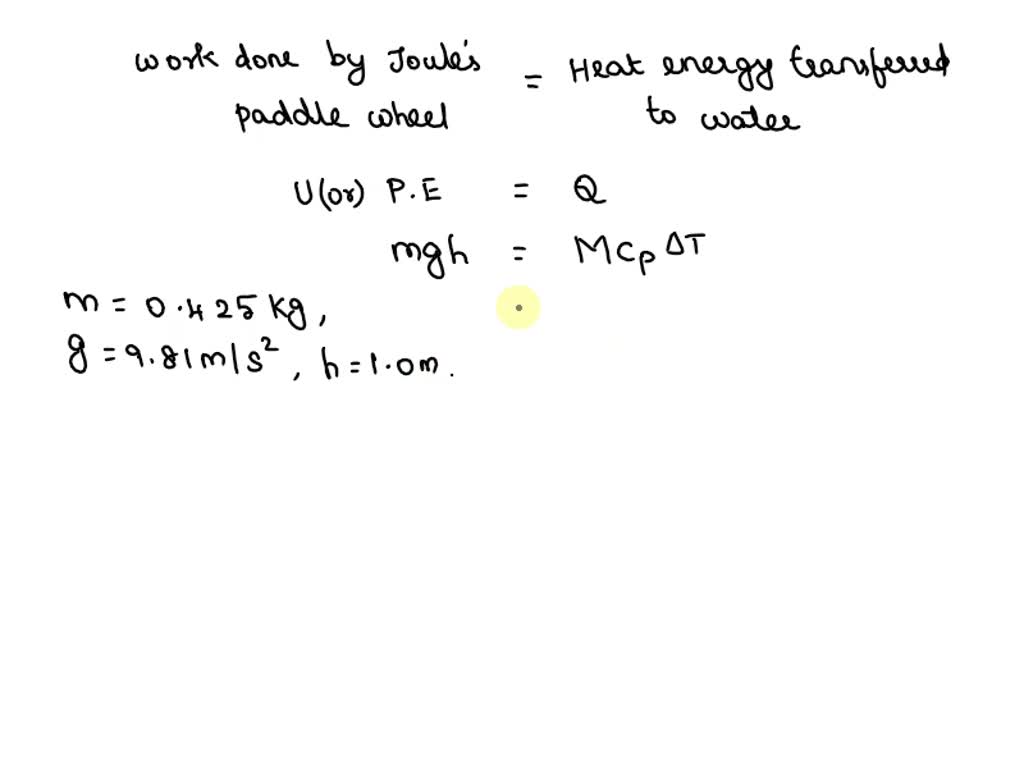 work done by Joule's = Heat energy transferred
paddle wheel to water
U(or) P.E = Q
mgh = MCp ΔT
m = 0.425 kg,
g = 9.81 m/s², h = 1.0m.